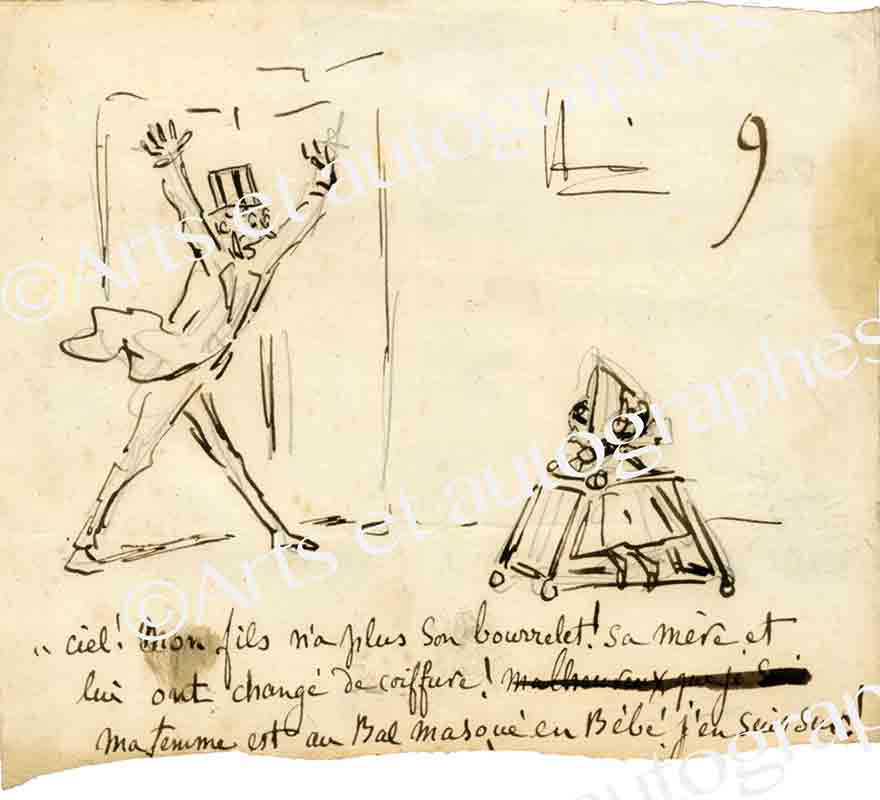 9
„ ciel! Mon fils n'a plus son bourrelet! sa mère et
lui ont changé de coiffure! malheureux que je
ma femme est au Bal masqué en Bébé j'en suis sur!
©Arts et autographes
©Arts et autographes
©Arts et autographes